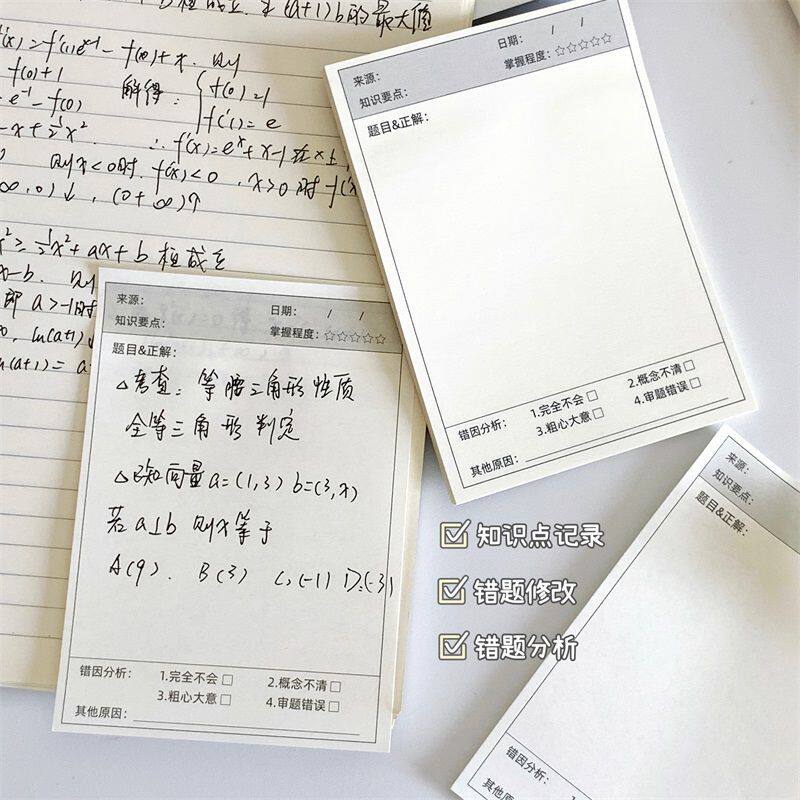 (a+1)b的最大值
f'(x)=f'(1)eˣ⁻¹-f(0)+x. 则
f(0)+1
解得:
f(0)=1
f'(1)=e
e⁻¹-f(0)
-x+½x².
∴f'(x)=eˣ+x-1
则x<0时, f'(x)<0, x>0时 f'(x
∞,0)↓, (0+∞)↑
x²≥½x²+ax+b 恒成立
x-b. 则
即 a>-1时
ln(a+1)
(a+1)=
来源:
日期: / /
知识要点:
掌握程度:☆☆☆☆☆
题目&正解:
错因分析:
1.完全不会□
2.概念不清□
3.粗心大意□
4.审题错误□
其他原因:
来源:
日期: / /
知识要点:
掌握程度:☆☆☆☆☆
题目&正解:
△考查: 等腰三角形性质
全等三角形判定
△已知向量a=(1,3) b=(3,x)
若a⊥b 则x等于
A(9). B(3) C.(-1) D.(-3)
错因分析:
1.完全不会□
2.概念不清□
3.粗心大意□
4.审题错误□
其他原因:
☑ 知识点记录
☑ 错题修改
☑ 错题分析
来源:
知识要点:
题目&正解:
错因分析:
其他原因: